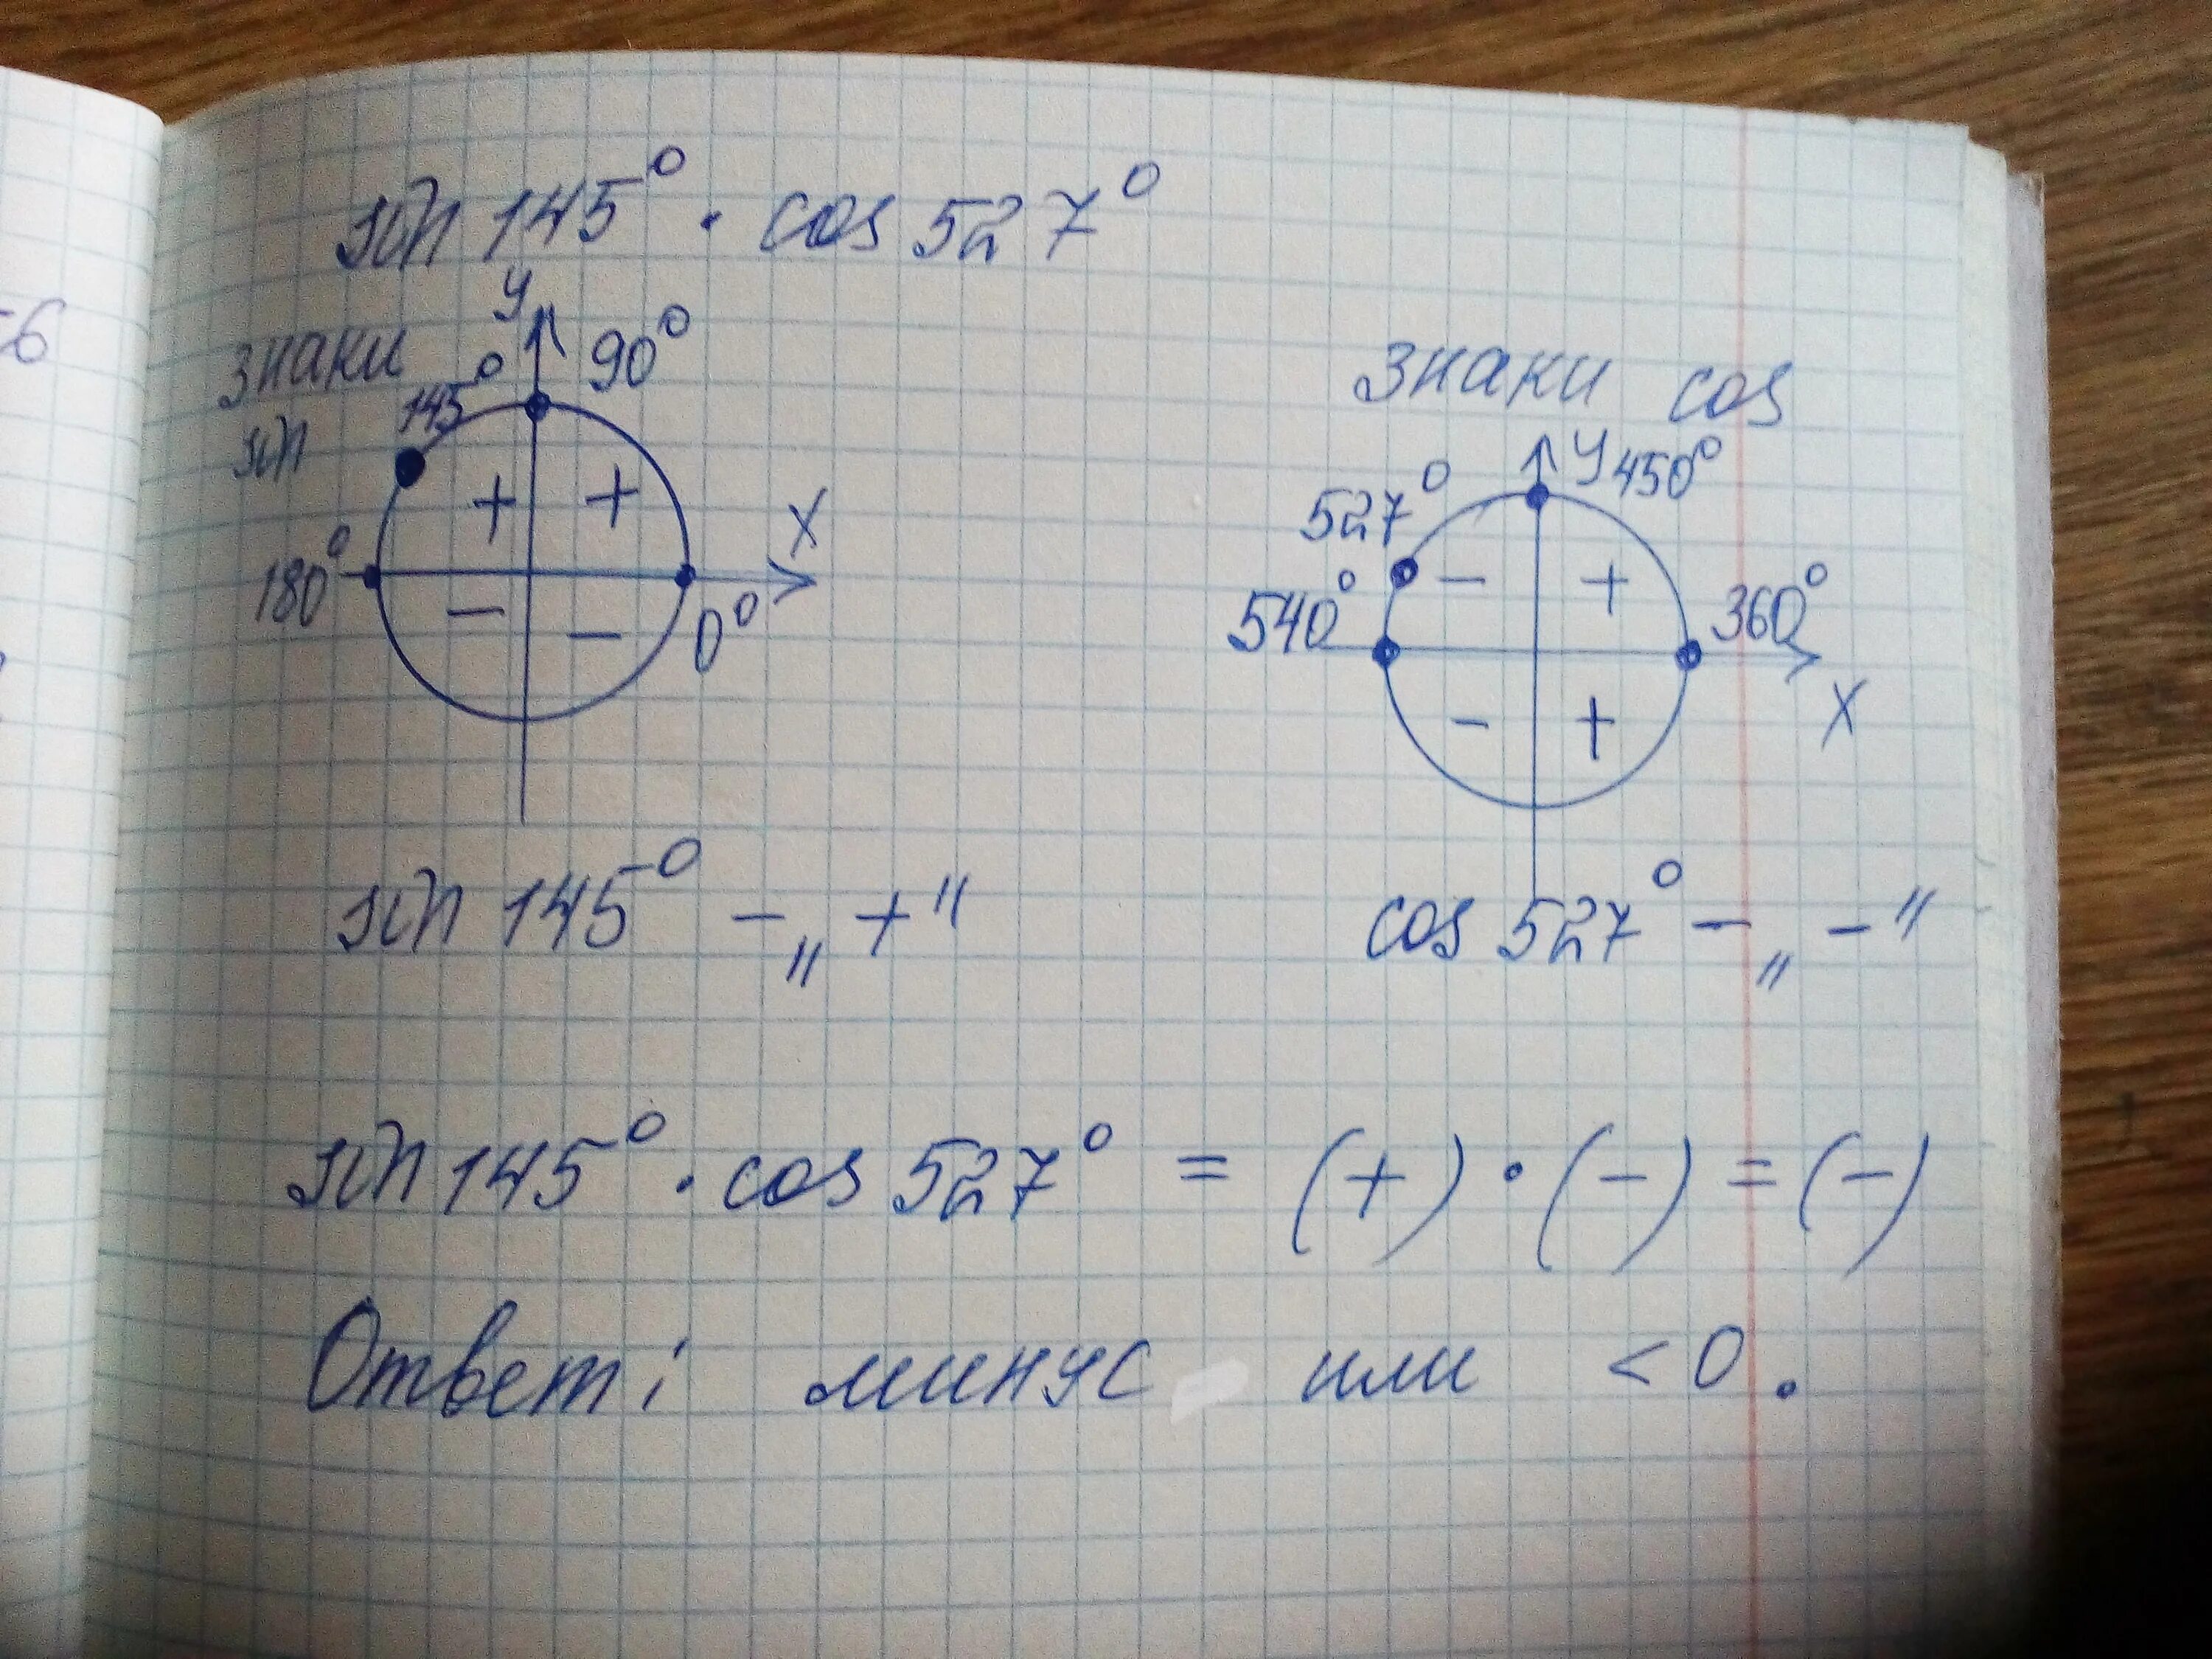 sin 145° · cos 527°
знаки sin
y
90°
145°
+ +
180°
x
− −
0°
знаки cos
y 450°
527°
− +
540°
360°
x
− +
sin 145° – „+"
cos 527° – „-"
sin 145° · cos 527° = (+) · (−) = (−)
Ответ: минус или < 0.
-6